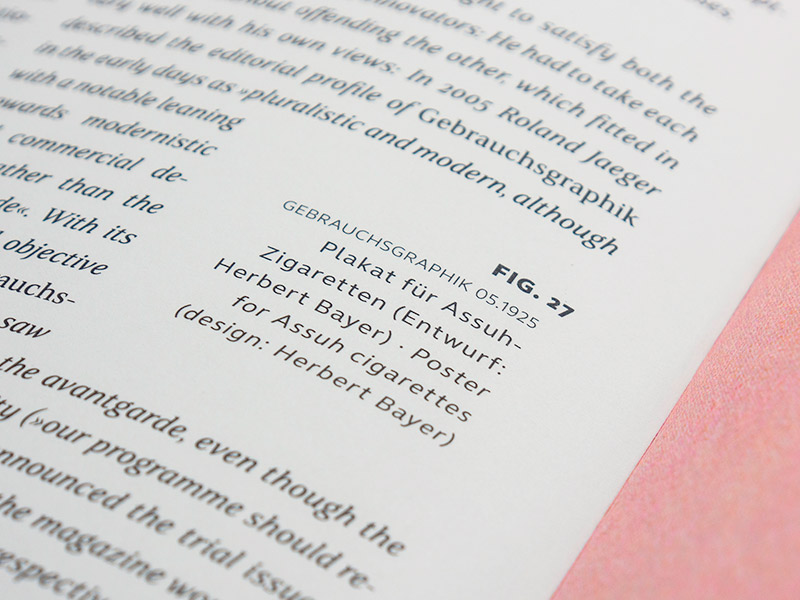 ght to satisfy both the
innovators: He had to take each
without offending the other, which fitted in
well with his own views: In 2005 Roland Jaeger
described the editorial profile of Gebrauchsgraphik
in the early days as »pluralistic and modern, although
with a notable leaning
towards modernistic
commercial de-
rather than the
de«. With its
objective
auchs-
saw
FIG. 27
GEBRAUCHSGRAPHIK 05.1925
Plakat für Assuh-
Zigaretten (Entwurf:
Herbert Bayer) · Poster
for Assuh cigarettes
(design: Herbert Bayer)
the avantgarde, even though the
ty (»our programme should re-
nnounced the trial issue
the magazine wo
respective